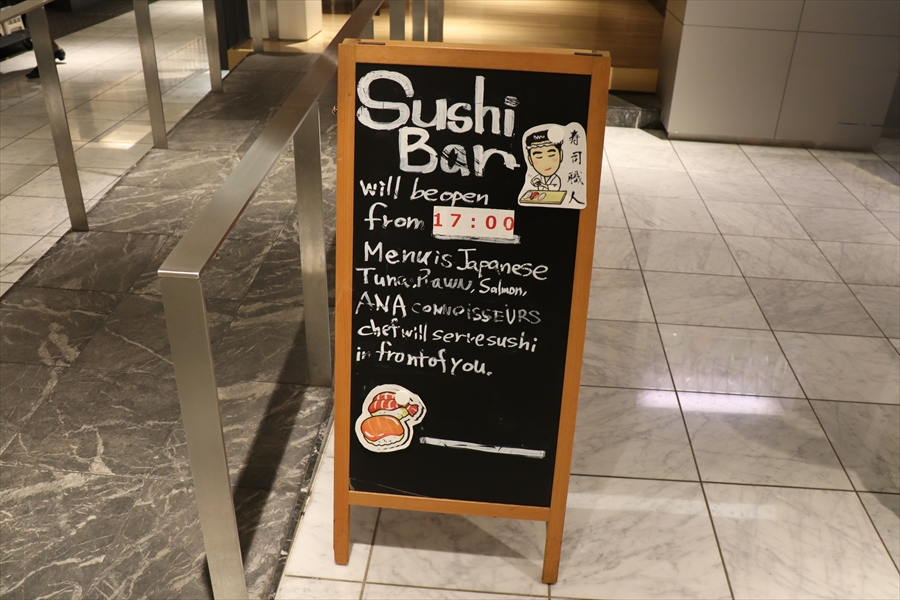 Sushi
Bar
寿司職人
will be open
from 17:00
Menu is Japanese
Tuna, Prawn, Salmon,
ANA CONNOISSEURS
chef will serve sushi
in front of you.